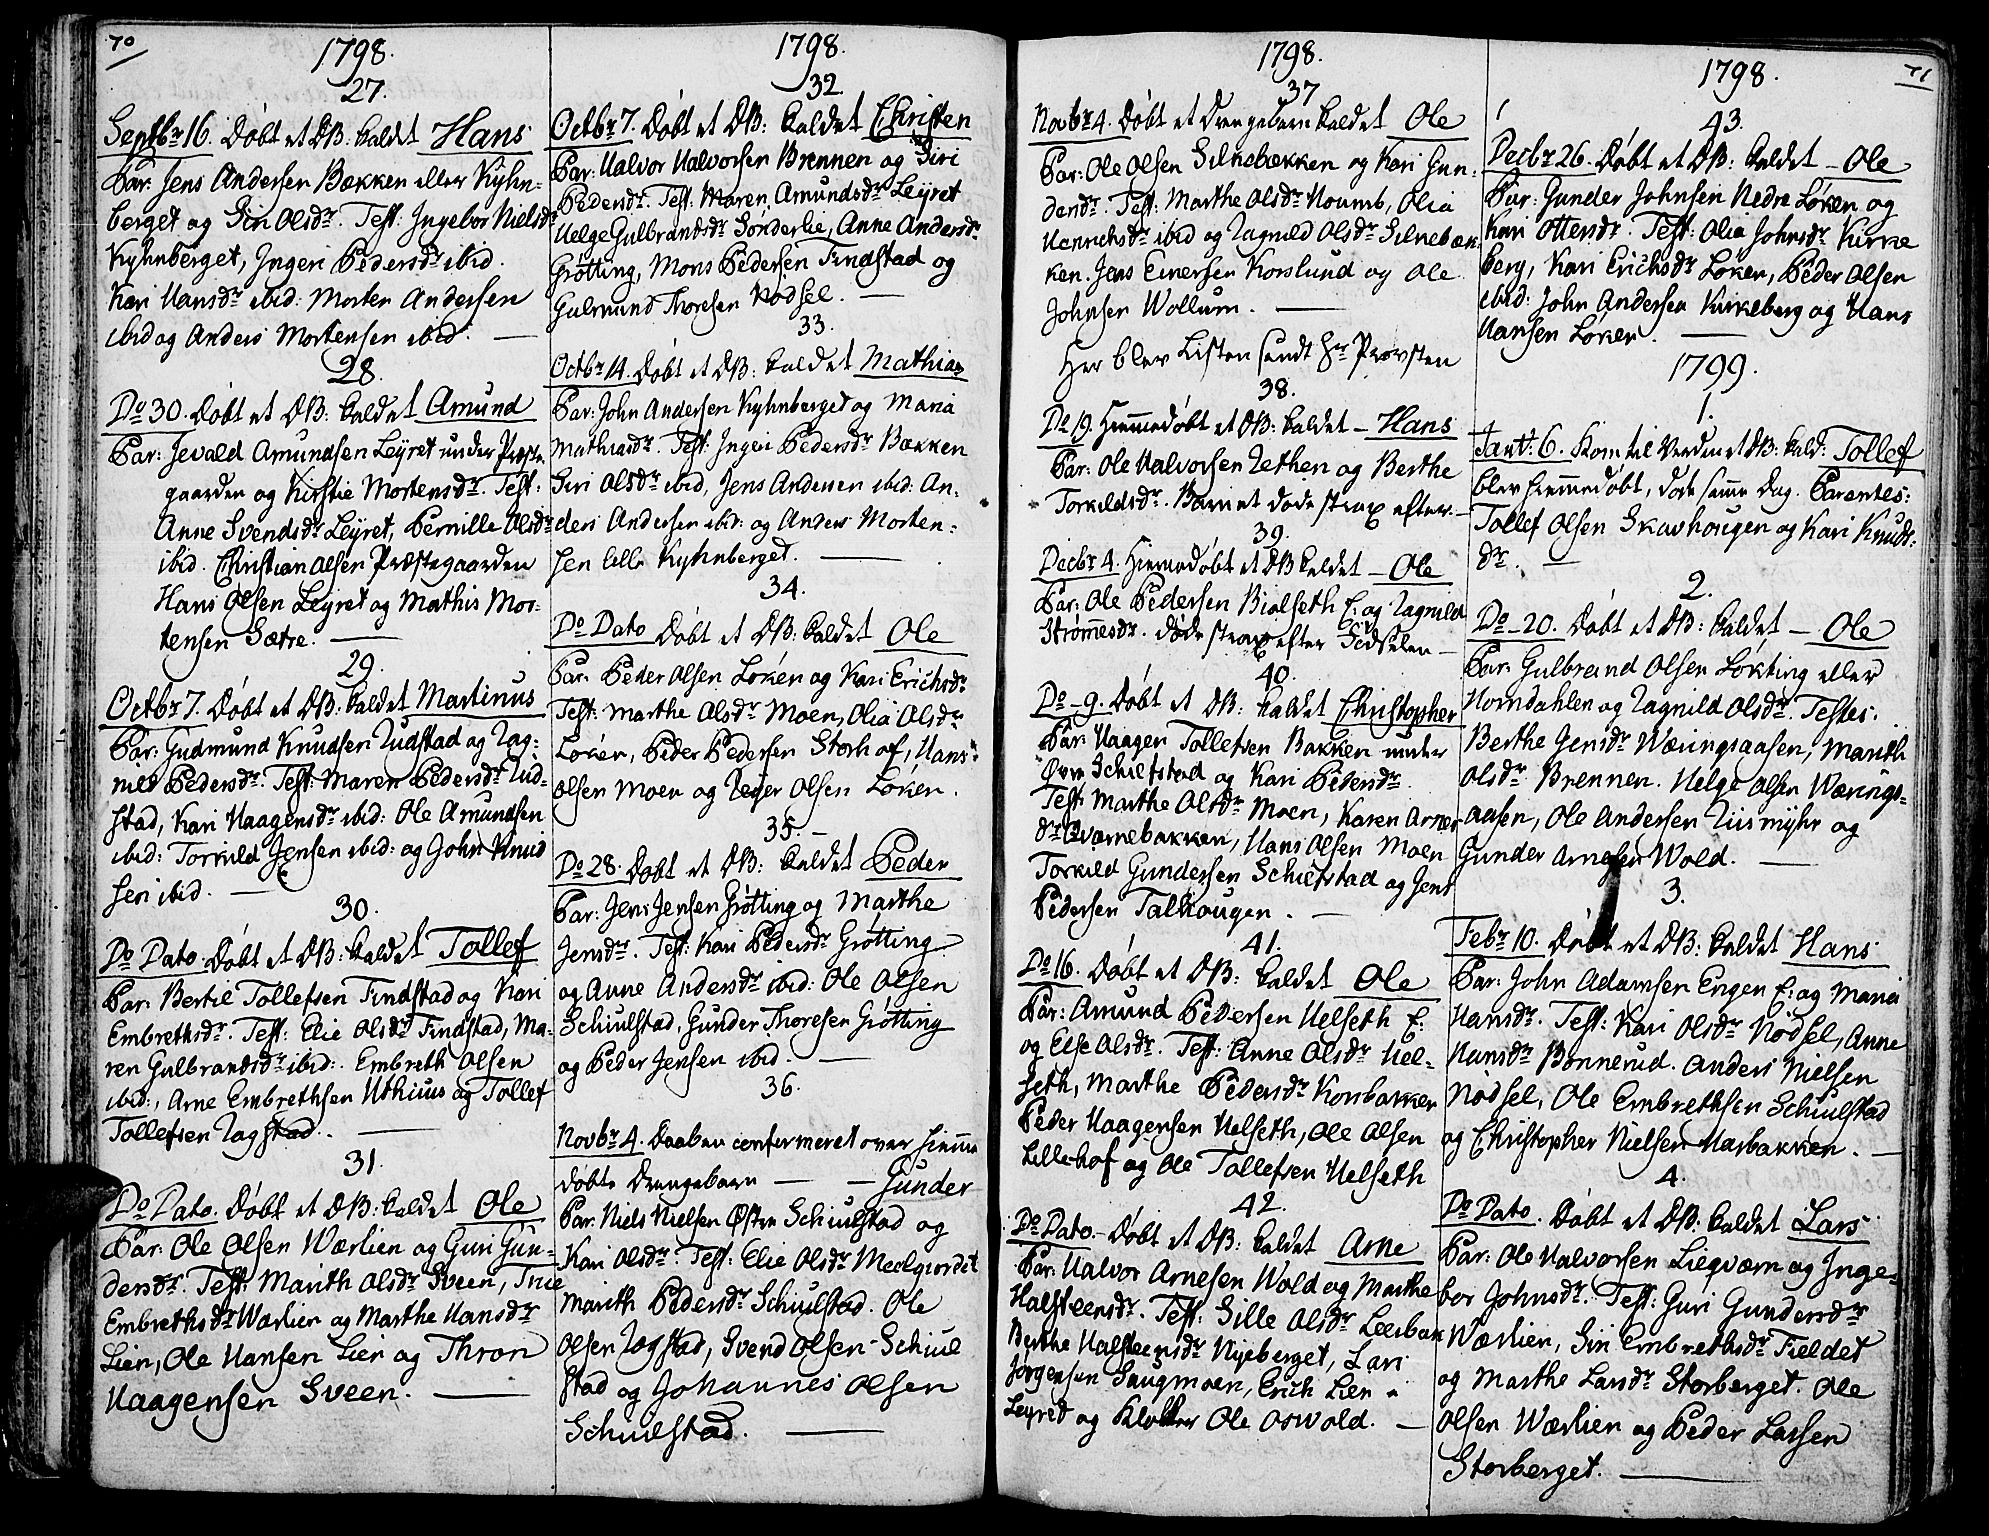 70
1798.
27.
Septbr 16. Døbt et DB: kaldet Hans
Par: Jens Andersen Bækken eller Kyhn-
berget og Siri Olsdr. Test: Ingebor Nielsdr
Kyhnberget, Ingeri Pedersdr ibid.
Kari Hansdr ibid: Morten Andersen
ibid og Anders Mortensen ibid.
28.
Do 30. Døbt et DB: kaldet Amund
Par: Jevald Amundsen Leyret under Præste
gaarden og Kirstie Mortensdr. Test:
Anne Svendsdr Leyret, Pernille Olsdr
ibid. Christian Olsen Præstegaarden
Hans Olsen Leyret og Mathis Mor-
tensen Sætre.
29.
Octbr 7. Døbt et DB: kaldet Martinus
Par: Gudmund Knudsen Rudstad og Rag-
nild Pedersdr. Test: Maren Pedersdr Rud-
stad, Kari Haagensdr ibid: Ole Amundsen
ibid: Torkild Jensen ibid: og John Knud
sen ibid.
30.
Do Dato Døbt et DB: kaldet Tollef
Par: Bertil Tollefsen Findstad og Kari
Embrethsdr. Test: Elie Olsdr Findstad, Ma-
ren Gulbrandsdr ibid: Embreth Olsen
ibid:, Arne Embrethsen Uthuus og Tollef
Tollefsen Ragstad.
31.
Do Dato. Døbt et DB: kaldet Ole
Par: Ole Olsen Wærlien og Guri Gun-
dersdr. Test: Marith Olsdr Sveen,
Embrethsdr Wærlien og Marthe Hansdr
Lien, Ole Hansen Lien og Thron
Haagensen Sveen.
1798.
32.
Octbr 7. Døbt et DB: kaldet Christen
Par: Halvor Halvorsen Brennen og Siri
Pedersdr. Test: Maren Amundsdr Leyret
Helge Gulbrandsdr Sønderlie, Anne Andersdr
Grøtting, Mons Pedersen Findstad og
Gulmund Thoresen Nødsel.
33.
Octbr 14. Døbt et DB: kaldet Mathias
Par: John Andersen Kyhnberget og Maria
Mathiasdr. Test: Ingeri Pedersdr Bækken
Siri Olsdr ibid, Jens Andersen ibid: An-
ders Andersen ibid: og Anders Morten-
sen lille Kyhnberget.
34.
Do Dato Døbt et DB: kaldet Ole
Par: Peder Olsen Løken og Kari Erichsdr
Test: Marthe Olsdr Moen, Olia Olsdr
Løken, Peder Pedersen Storhof, Hans
Olsen Moen og Reier Olsen Løken.
35.
Do 28. Døbt et DB: kaldet Peder
Par: Jens Jensen Grøtting og Marthe
Jensdr. Test: Kari Pedersdr Grøtting
og Anne Andersdr ibid: Ole Olsen
Schiulstad, Gunder Thoresen Grøtting
og Peder Jensen ibid.
36.
Novbr 4. Daaben confermeret over hiemme
døbte Drengebarn Gunder
Par: Niels Nielsen Østre Schiulstad og
Kari Olsdr. Test: Elie Olsdr Meelgiordet
Marith Pedersdr Schiulstad. Ole
Olsen Ragstad, Svend Olsen Schiul
stad og Johannes Olsen
Schiulstad.
1798.
37
Novbr 4. Døbt et Drengebarn kaldet Ole
Par: Ole Olsen Silkebækken og Kari Gun-
dersdr. Test: Marthe Olsdr Noumb, Olia
Henrichsdr ibid og Ragnild Olsdr Silkebæk-
ken. Jens Einersen Korslund og Ole
Johnsen Wollum.
Her blev Listen sendt Hr Provsten
38.
Do 19. Hiemmedøbt et DB: kaldet Hans
Par: Ole Halvorsen Rethen og Berthe
Torkildsdr. Barnet døde strax efter.
39.
Decbr 4. Hiemedøbt et DB kaldet Ole
Par: Ole Pedersen Bialseth E: og Ragnild
Strømmesdr. døde strax efter Fødselen
40.
Do 9. Døbt et DB: kaldet Christopher
Par: Haagen Tollefsen Bakken under
Øvre Schiefstad og Kari Pedersdr.
Test: Marthe Olsdr Moen, Karen Arnes
dr Qværnebakken, Hans Olsen Moen
Torkild Gundersen Schiefstad og Jens
Pedersen Talhougen.
41.
Do 16. Døbt et DB: kaldet Ole
Par: Amund Pedersen Helseth E:
og Else Olsdr. Test: Anne Olsdr Hel-
seth, Marthe Pedersdr Korsbakken
Peder Haagensen Helseth, Ole Olsen
Lillehof og Ole Tollefsen Helseth
42.
Do Dato. Døbt et DB: kaldet Arne
Par: Halvor Arnesen Wold og Marthe
Halsteensdr. Test: Sille Olsdr
Berthe Halsteensdr Nyeberget, Lars
Jørgensen Saugmoen, Erich Lien
Leyret og Klokker Ole Oswold.
71
1798.
43.
Decbr 26. Døbt et DB: kaldet Ole
Par: Gunder Johnsen Nedre Løken og
Kari Ottersdr. Test: Olia Johnsdr Kirke
berg, Kari Erichsdr Løken, Peder Olsen
ibid: John Andersen Kirkeberg og Hans
Hansen Løken.
1799.
1.
Januar: 6. Kom til Verden et DB: kald: Tollef
blev hiemmedøbt, døde samme Dag. Parentes:
Tollef Olsen Skavhougen og Kari Knuds-
dr.
2.
Do 20. Døbt et DB: kaldet Ole
Par: Gulbrand Olsen Løkting eller
Horndahlen og Ragnild Olsdr. Testes:
Berthe Jensdr Wæringsaasen, Marith
Olsdr Brennen. Helge Olsen Wærings-
aasen, Ole Andersen Riismyhr og
Gunder Arnesen Wold.
3.
Febr 10. Døbt et DB: kaldet Hans
Par: John Adamsen Engen E: og Maria
Hansdr. Test: Kari Olsdr Nødsel, Anne
Hansdr Bønnerud. Anders Nielsen
Nødsel, Ole Embrethsen Schiulstad
og Christopher Nielsen Harbakken.
4.
Do Dato. Døbt et DB: kaldet Lars
Par: Ole Halvorsen Lieqværn og Inge-
bor Johnsdr. Test: Guri Gundersdr
Wærlien, Siri Embrethsdr Fieldet
og Marthe Larsdr Storberget. Ole
Olsen Wærlien og Peder Larsen
Storberget.